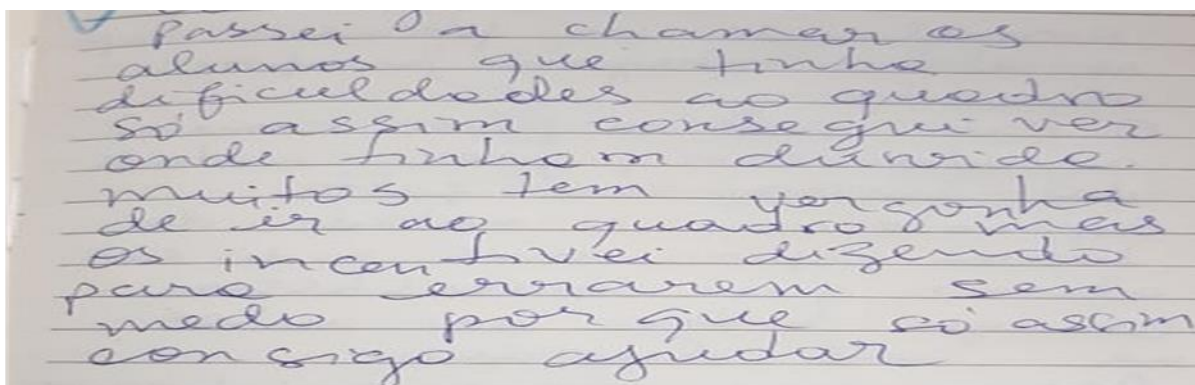 Passei a chamar os
alunos que tinha
dificuldades ao quadro
só assim consegui ver
onde tinham dúvida.
muitos tem vergonha
de ir ao quadro mais
os incentivei dizendo
para errarem sem
medo por que só assim
consigo ajudar